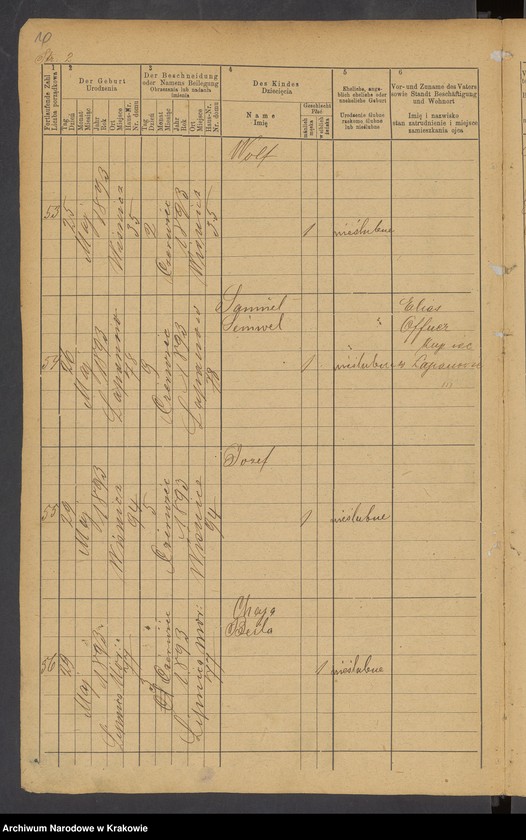 1
2
3
4
5
6
Fortlaufende Zahl
Liczba porządkowa
Der Geburt
Urodzenia
Tag
Dzień
Monat
Miesiąc
Jahr
Rok
Ort
Miejsce
Haus-Nr.
Nr. domu
Der Beschneidung
oder Namens Beilegung
Obrzezania lub nadania
imienia
Tag
Dzień
Monat
Miesiąc
Jahr
Rok
Ort
Miejsce
Haus-Nr.
Nr. domu
Des Kindes
Dziecięcia
Name
Imię
Geschlecht
Płeć
männlich
męska
weiblich
żeńska
Eheliche, ange-
blich eheliche oder
uneheliche Geburt
Urodzenie ślubne
rzekomo ślubne
lub nieślubne
Vor- und Zuname des Vaters
sowie Standt Beschäftigung
und Wohnort
Imię i nazwisko
stan zatrudnienie i miejsce
zamieszkania ojca
53
25
Maj
1893
Wiśnicz
35
2
Czerwiec
1893
Wiśnicz
35
Wolf
1
nieślubne
54
26
Maj
1893
Łapanow
78
2
Czerwiec
1893
Łapanow
78
Samuel
Simwel
1
nieślubne
Elias
Offner
w Łapanowie
55
29
Maj
1893
Wiśnicz
94
5
Czerwiec
1893
Wiśnicz
94
Jozef
1
nieślubne
56
29
Maj
1893
Lipnica Mor:
77
3
Czerwiec
1893
Lipnica Mor:
77
Chaja
Beila
1
nieślubne
Archiwum Narodowe w Krakowie